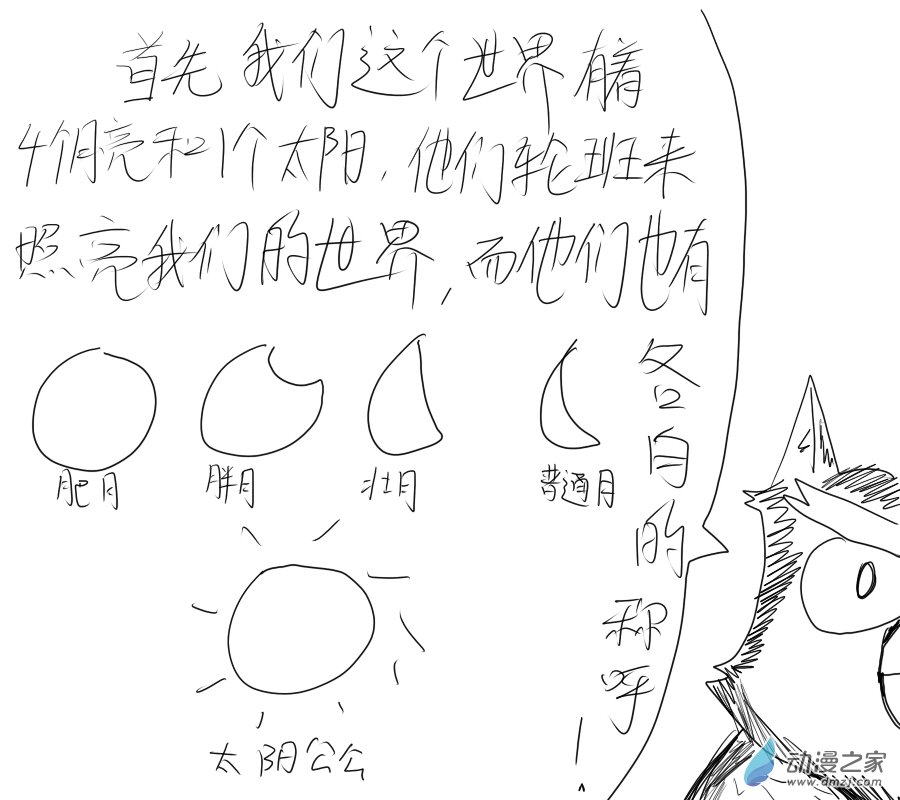 首先 我们这个世界 有着
4个月亮和1个太阳,他们轮班来
照亮我们的世界,而他们也有
各自的称呼!
肥月
胖月
壮月
普通月
太阳公公
动漫之家
www.dmzj.com